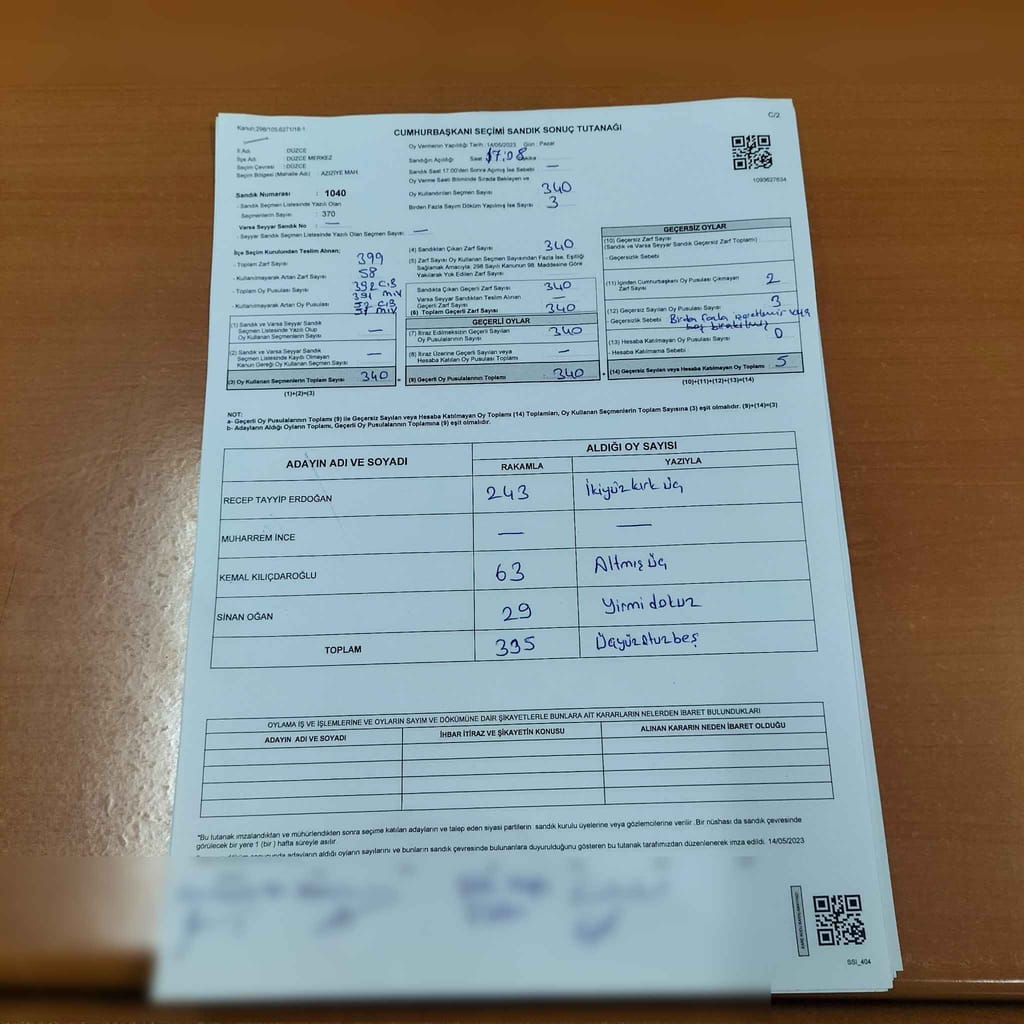 Kanun:298/105-6271/18-1
C/2
CUMHURBAŞKANI SEÇİMİ SANDIK SONUÇ TUTANAĞI
İl Adı : DÜZCE
İlçe Adı : DÜZCE MERKEZ
Seçim Çevresi : DÜZCE
Seçim Bölgesi (Mahalle Adı) : AZİZİYE MAH.
Sandık Numarası : 1040
- Sandık Seçmen Listesinde Yazılı Olan
Seçmenlerin Sayısı : 370
Varsa Seyyar Sandık No : —
- Seyyar Sandık Seçmen Listesinde Yazılı Olan Seçmen Sayısı : —
Oy Vermenin Yapıldığı Tarih : 14/05/2023 Gün : Pazar
Sandığın Açıldığı Saat 17.08 Dakika
Sandık Saat 17.00'den Sonra Açılmış İse Sebebi —
Oy Verme Saati Bitiminde Sırada Bekleyen ve
Oy Kullandırılan Seçmen Sayısı 340
Birden Fazla Sayım Döküm Yapılmış İse Sayısı 3
1093627634
İlçe Seçim Kurulundan Teslim Alınan;
- Toplam Zarf Sayısı : 399
- Kullanılmayarak Artan Zarf Sayısı : 58
- Toplam Oy Pusulası Sayısı : 392 CB
391 miv
- Kullanılmayarak Artan Oy Pusulası CB
miv
(1) Sandık ve Varsa Seyyar Sandık
Seçmen Listesinde Yazılı Olup
Oy Kullanan Seçmenlerin Sayısı —
(2) Sandık ve Varsa Seyyar Sandık
Seçmen Listesinde Kaydı Olmayan
Kanun Gereği Oy Kullanan Seçmen Sayısı —
(3) Oy Kullanan Seçmenlerin Toplam Sayısı : 340
(1)+(2)=(3)
(4) Sandıktan Çıkan Zarf Sayısı : 340
(5) Zarf Sayısı Oy Kullanan Seçmen Sayısından Fazla İse, Eşitliği
Sağlamak Amacıyla, 298 Sayılı Kanunun 98. Maddesine Göre
Yakılarak Yok Edilen Zarf Sayısı
Sandıkta Çıkan Geçerli Zarf Sayısı : 340
Varsa Seyyar Sandıktan Teslim Alınan
Geçerli Zarf Sayısı —
(6) Toplam Geçerli Zarf Sayısı : 340
GEÇERLİ OYLAR
(7) İtiraz Edilmeksizin Geçerli Sayılan
Oy Pusulası Sayısı : 340
(8) İtiraz Üzerine Geçerli Sayılan veya
Hesaba Katılan Oy Pusulası Sayısı : —
(9) Geçerli Oy Pusulalarının Toplamı : 340
GEÇERSİZ OYLAR
(10) Geçersiz Zarf Sayısı
(Sandık ve Varsa Seyyar Sandık Geçersiz Zarf Toplamı)
- Geçersizlik Sebebi
(11) İçinden Cumhurbaşkanı Oy Pusulası Çıkmayan
Zarf Sayısı 2
(12) Geçersiz Sayılan Oy Pusulası Sayısı : 3
- Geçersizlik Sebebi Birden fazla işaretlemir veya
boş bırakılmış
(13) Hesaba Katılmayan Oy Pusulası Sayısı : 0
- Hesaba Katılmama Sebebi
(14) Geçersiz Sayılan veya Hesaba Katılmayan Oy Toplamı : 5
(10)+(11)+(12)+(13)=(14)
NOT:
a- Geçerli Oy Pusulalarının Toplamı (9) ile Geçersiz Sayılan veya Hesaba Katılmayan Oy Toplamı (14) Toplamları, Oy Kullanan Seçmenlerin Toplam Sayısına (3) eşit olmalıdır. (9)+(14)=(3)
b- Adayların Aldığı Oyların Toplamı, Geçerli Oy Pusulalarının Toplamına (9) eşit olmalıdır.
ADAYIN ADI VE SOYADI ALDIĞI OY SAYISI
RAKAMLA YAZIYLA
RECEP TAYYİP ERDOĞAN 243 İkiyüz kırk üç
MUHARREM İNCE — —
KEMAL KILIÇDAROĞLU 63 Altmış üç
SİNAN OĞAN 29 Yirmi dokuz
TOPLAM 335 Üçyüzotuzbeş
OYLAMA İŞ VE İŞLEMLERİNE VE OYLARIN SAYIM VE DÖKÜMÜNE DAİR ŞİKAYETLERLE BUNLARA AİT KARARLARIN NELERDEN İBARET BULUNDUKLARI
ADAYIN ADI VE SOYADI İHBAR İTİRAZ VE ŞİKAYETİN KONUSU ALINAN KARARIN NEDEN İBARET OLDUĞU
*Bu tutanak imzalandıktan ve mühürlendikten sonra seçime katılan adayların ve talep eden siyasi partilerin sandık kurulu üyelerine veya gözlemcilerine verilir. Bir nüshası da sandık çevresinde
görülecek bir yere 1 (bir) hafta süreyle asılır
adayların aldığı oyların sayılarını ve bunların sandık çevresinde bulunanlara duyurulduğunu gösteren bu tutanak tarafımızdan düzenlenerek imza edildi. 14/05/2023
SSI_404